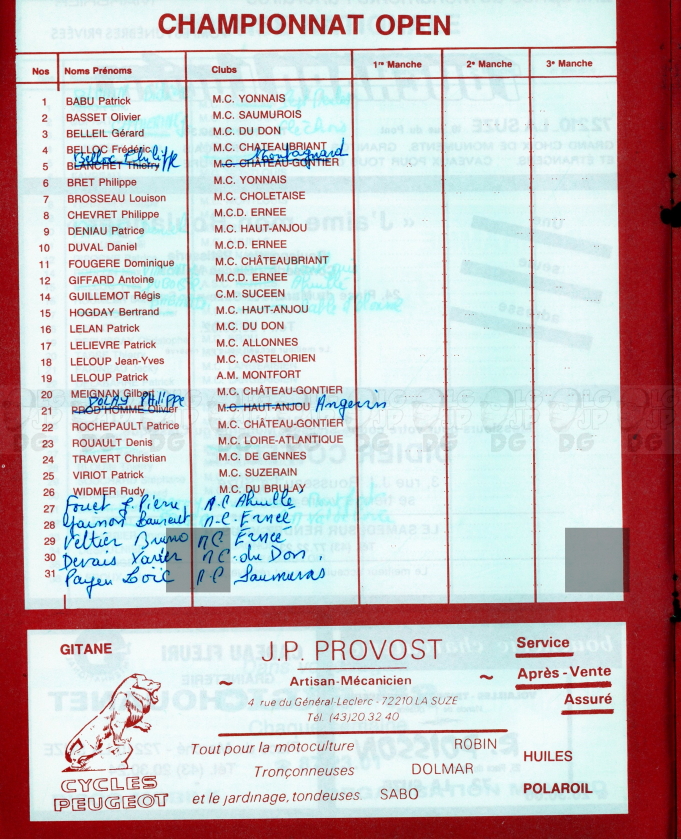 CHAMPIONNAT OPEN
Nos Noms Prénoms Clubs 1re Manche 2e Manche 3e Manche
1 BABU Patrick M.C. YONNAIS
2 BASSET Olivier M.C. SAUMUROIS
3 BELLEIL Gérard M.C. DU DON
4 BELLOC Frédéric M.C. CHATEAUBRIANT
Belloc Philippe Montagnard
5 BLANCHET Thierry M.C. CHÂTEAU-GONTIER
6 BRET Philippe M.C. YONNAIS
7 BROSSEAU Louison M.C. CHOLETAISE
8 CHEVRET Philippe M.C.D. ERNEE
9 DENIAU Patrice M.C. HAUT-ANJOU
10 DUVAL Daniel M.C.D. ERNEE
11 FOUGERE Dominique M.C. CHÂTEAUBRIANT
12 GIFFARD Antoine M.C.D. ERNEE
14 GUILLEMOT Régis C.M. SUCEEN
15 HOGDAY Bertrand M.C. HAUT-ANJOU
16 LELAN Patrick M.C. DU DON
17 LELIEVRE Patrick M.C. ALLONNES
18 LELOUP Jean-Yves M.C. CASTELORIEN
19 LELOUP Patrick A.M. MONTFORT
20 MEIGNAN Gilbert M.C. CHÂTEAU-GONTIER
DOLAY PHILIPPE
21 PROD'HOMME Olivier M.C. HAUT-ANJOU Angevin
22 ROCHEPAULT Patrice M.C. CHÂTEAU-GONTIER
23 ROUAULT Denis M.C. LOIRE-ATLANTIQUE
24 TRAVERT Christian M.C. DE GENNES
25 VIRIOT Patrick M.C. SUZERAIN
26 WIDMER Rudy M.C. DU BRULAY
27 Fouet J. Pierre
28 Laurent M.C. Ernée
29 Veltier Bruno M.C. Ernée
30 Dervais Xavier M.C. du Don.
31 Payen Loïc
GITANE
CYCLES
PEUGEOT
J.P. PROVOST
~ Artisan-Mécanicien ~
4 rue du Général-Leclerc - 72210 LA SUZE
Tél. (43) 20 32 40
Service
Après-Vente
Assuré
Tout pour la motoculture ROBIN
Tronçonneuses DOLMAR
et le jardinage, tondeuses SABO
HUILES
POLAROIL